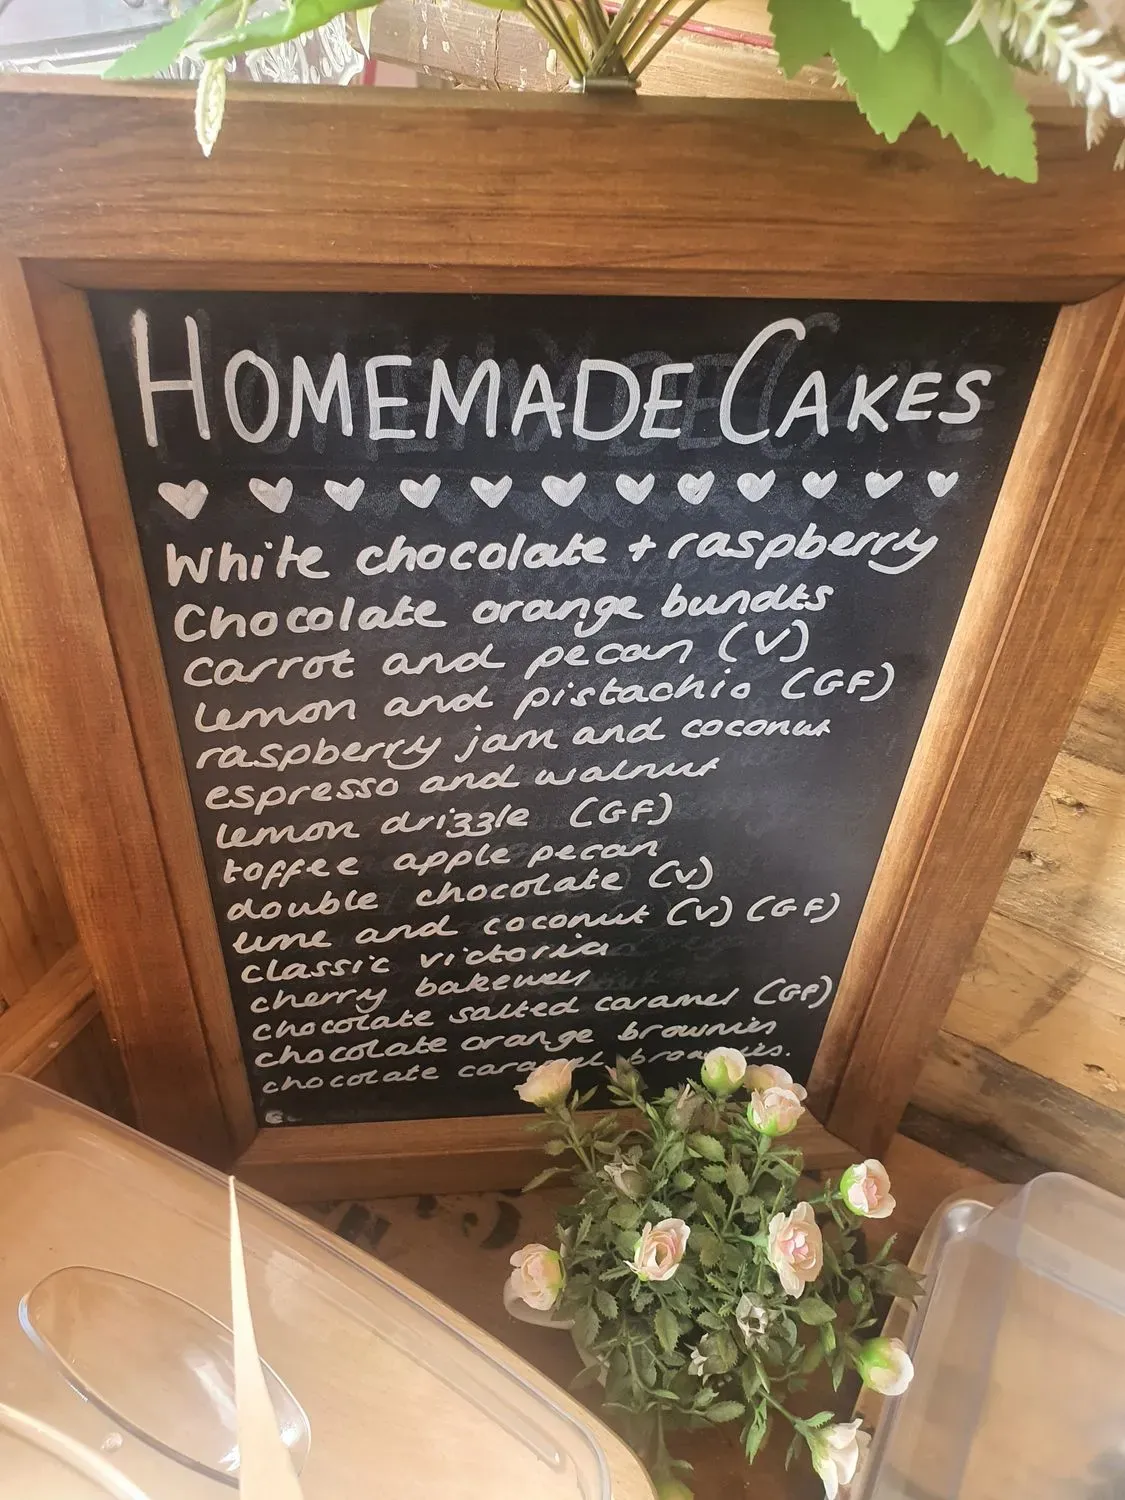 HOMEMADE CAKES
White chocolate + raspberry
Chocolate orange bundts
carrot and pecan (V)
lemon and pistachio (GF)
raspberry jam and coconut
espresso and walnut
lemon drizzle (GF)
toffee apple pecan
double chocolate (V)
lime and coconut (V) (GF)
classic victoria
cherry bakewell
chocolate salted caramel (GF)
chocolate orange brownies
chocolate caramel brownies.